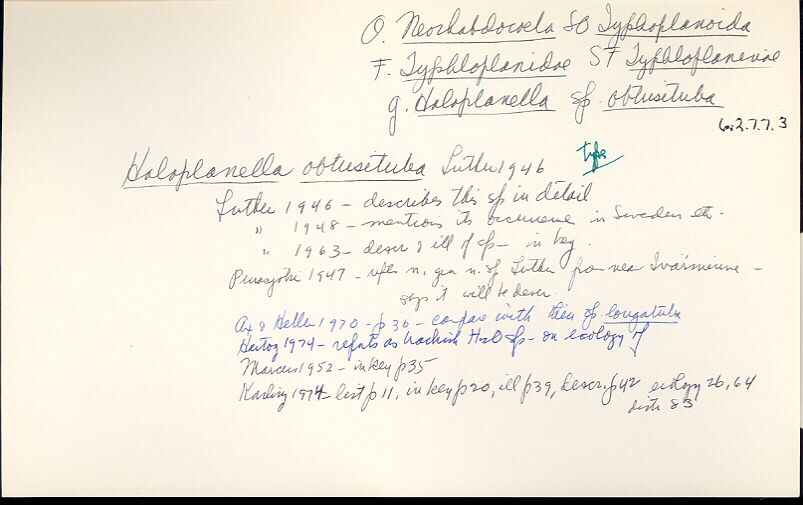 O. Neorhabdocoela SO Typhloplanoida
F. Typhloplanidae SF Typhloplaninae
g. Haloplanella sp. obtusituba
6:2.7.7.3
Haloplanella obtusituba Luther 1946 type
Luther 1946 - describes this sp in detail
" 1948 - mentions its occurrence in Sweden etc.
" 1963 - descr & ill of sp - in key.
1947 - refers n. gen n. sp Luther from near -
says it will be descr.
Ax & Heller 1970 - p 36 - compare with their sp longatuba
Hartog 1974 - reports as brackish H2O sp - on ecology of
Marcus 1952 - in key p 35
Karling 1974 - list p 11, in key p 20, ill p 39, descr. p 42 ecology 26, 64
distr 83